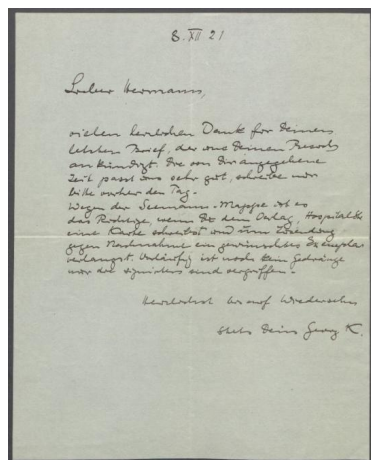 8. XII 21
Lieber Hermann,
vielen herzlichen Dank für Deinen
letzten Brief, der uns Deinen Besuch
ankündigt. Die von Dir angegebene
Zeit passt uns sehr gut, schreibe mir
bitte vorher den Tag.
Wegen der Seemann-Mappe ist es
das Richtige, wenn Du dem Verlag, Hospitalstr.
eine Karte schreibst und um Zusendung
gegen Nachnahme ein gewünschtes Exemplar
verlangst. Vorläufig ist noch kein Gedränge
nur die signierten sind vergriffen.
Herzlichst bis auf Wiedersehn
stets Dein Georg K.